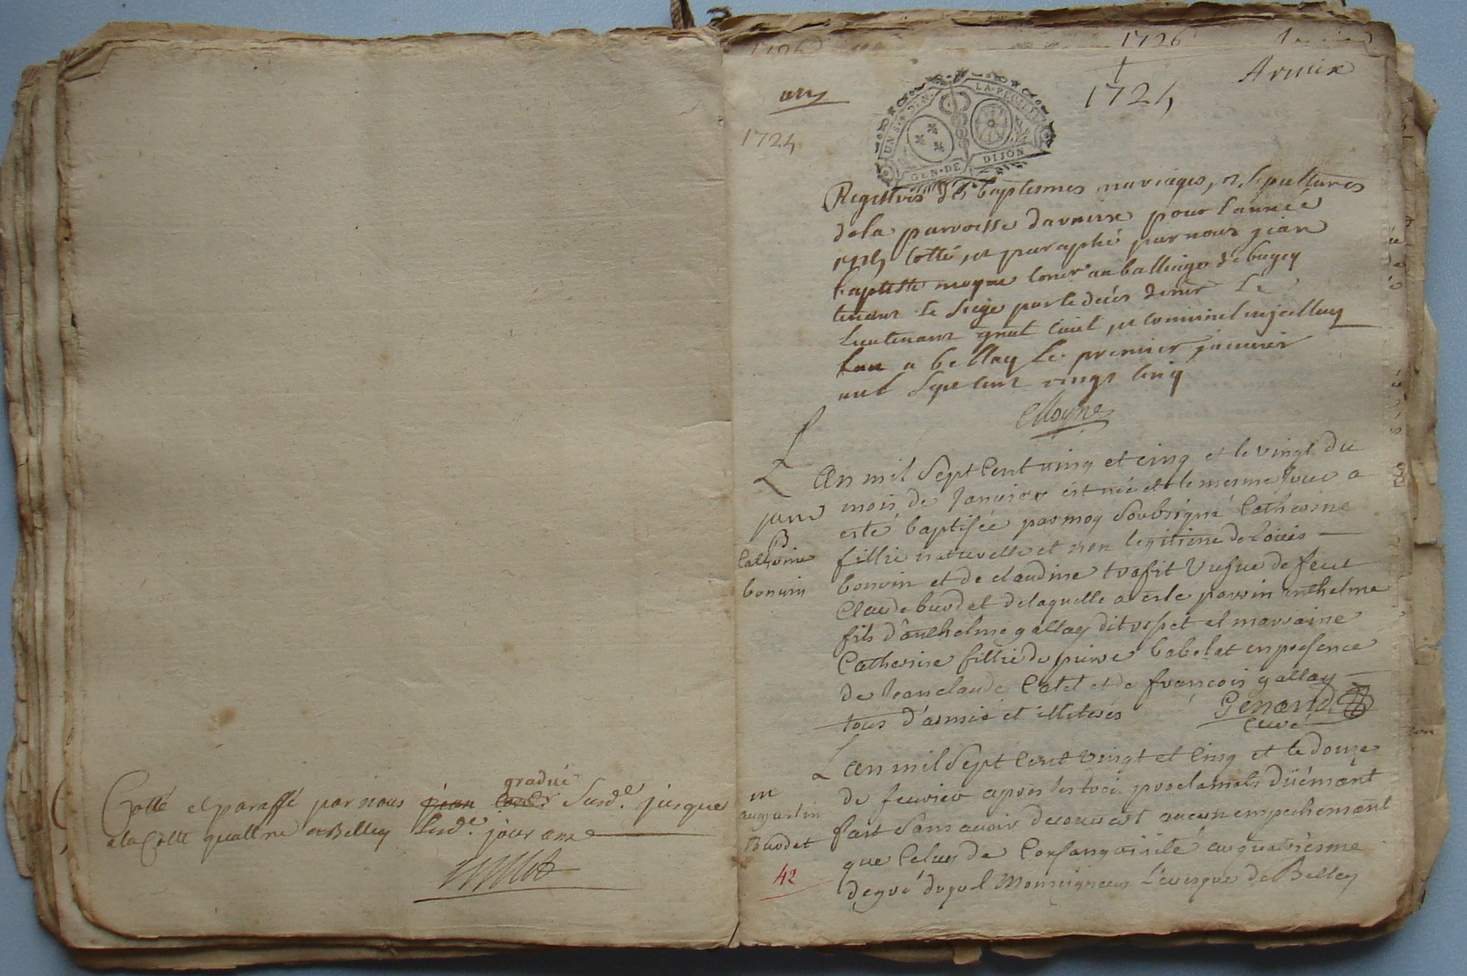 Cotté et paraffé par nous jean gradué Susd.e jusque
a la Cotte quattrie a Belley Susd.e jour an
1726
1726
Armix
an
1725
1725
GEN • DE DIJON
Registres des baptesmes mariages, et sepultures
de la parroisse darmix pour l'année
1725 Cotté, et paraphé par nous jean
baptiste moyne Conser au balliage de bugey
tenant le siege par le deces de mr Le
Lieutenant gnal Civil, et Criminel
a bellay Le premier janvier
mil Sept cent vingt Cinq
Moyne
L'an mil Sept Cent vinq et cinq et le vingt du
mois de Janvier est née et le mesme Jour a
esté baptisée par moy Soubsigné Catherine
fillie naturelle et non legitime de loüis
bonnin et de claudine trafit Vefve de feut
Claude burdet de laquelle a esté parrin anthelme
fils d'anthelme gallay dit et marraine
Catherine fillie de pierre babolat en presence
de Jean claude Catel et de françois gallay
tous d'armix et illiteres Genard
Curé
janv
B
Catherine
bonnin
L'an mil Sept Cent vingt et Cinq et le douze
de feuvier apres les troi proclamats düement
fait Sans avoir decouvert aucun empechement
que Celuy de Consanguinité au quatriesme
degré duquel Monseigneur L'evesque de Belley
m
augustin
Burdet
42